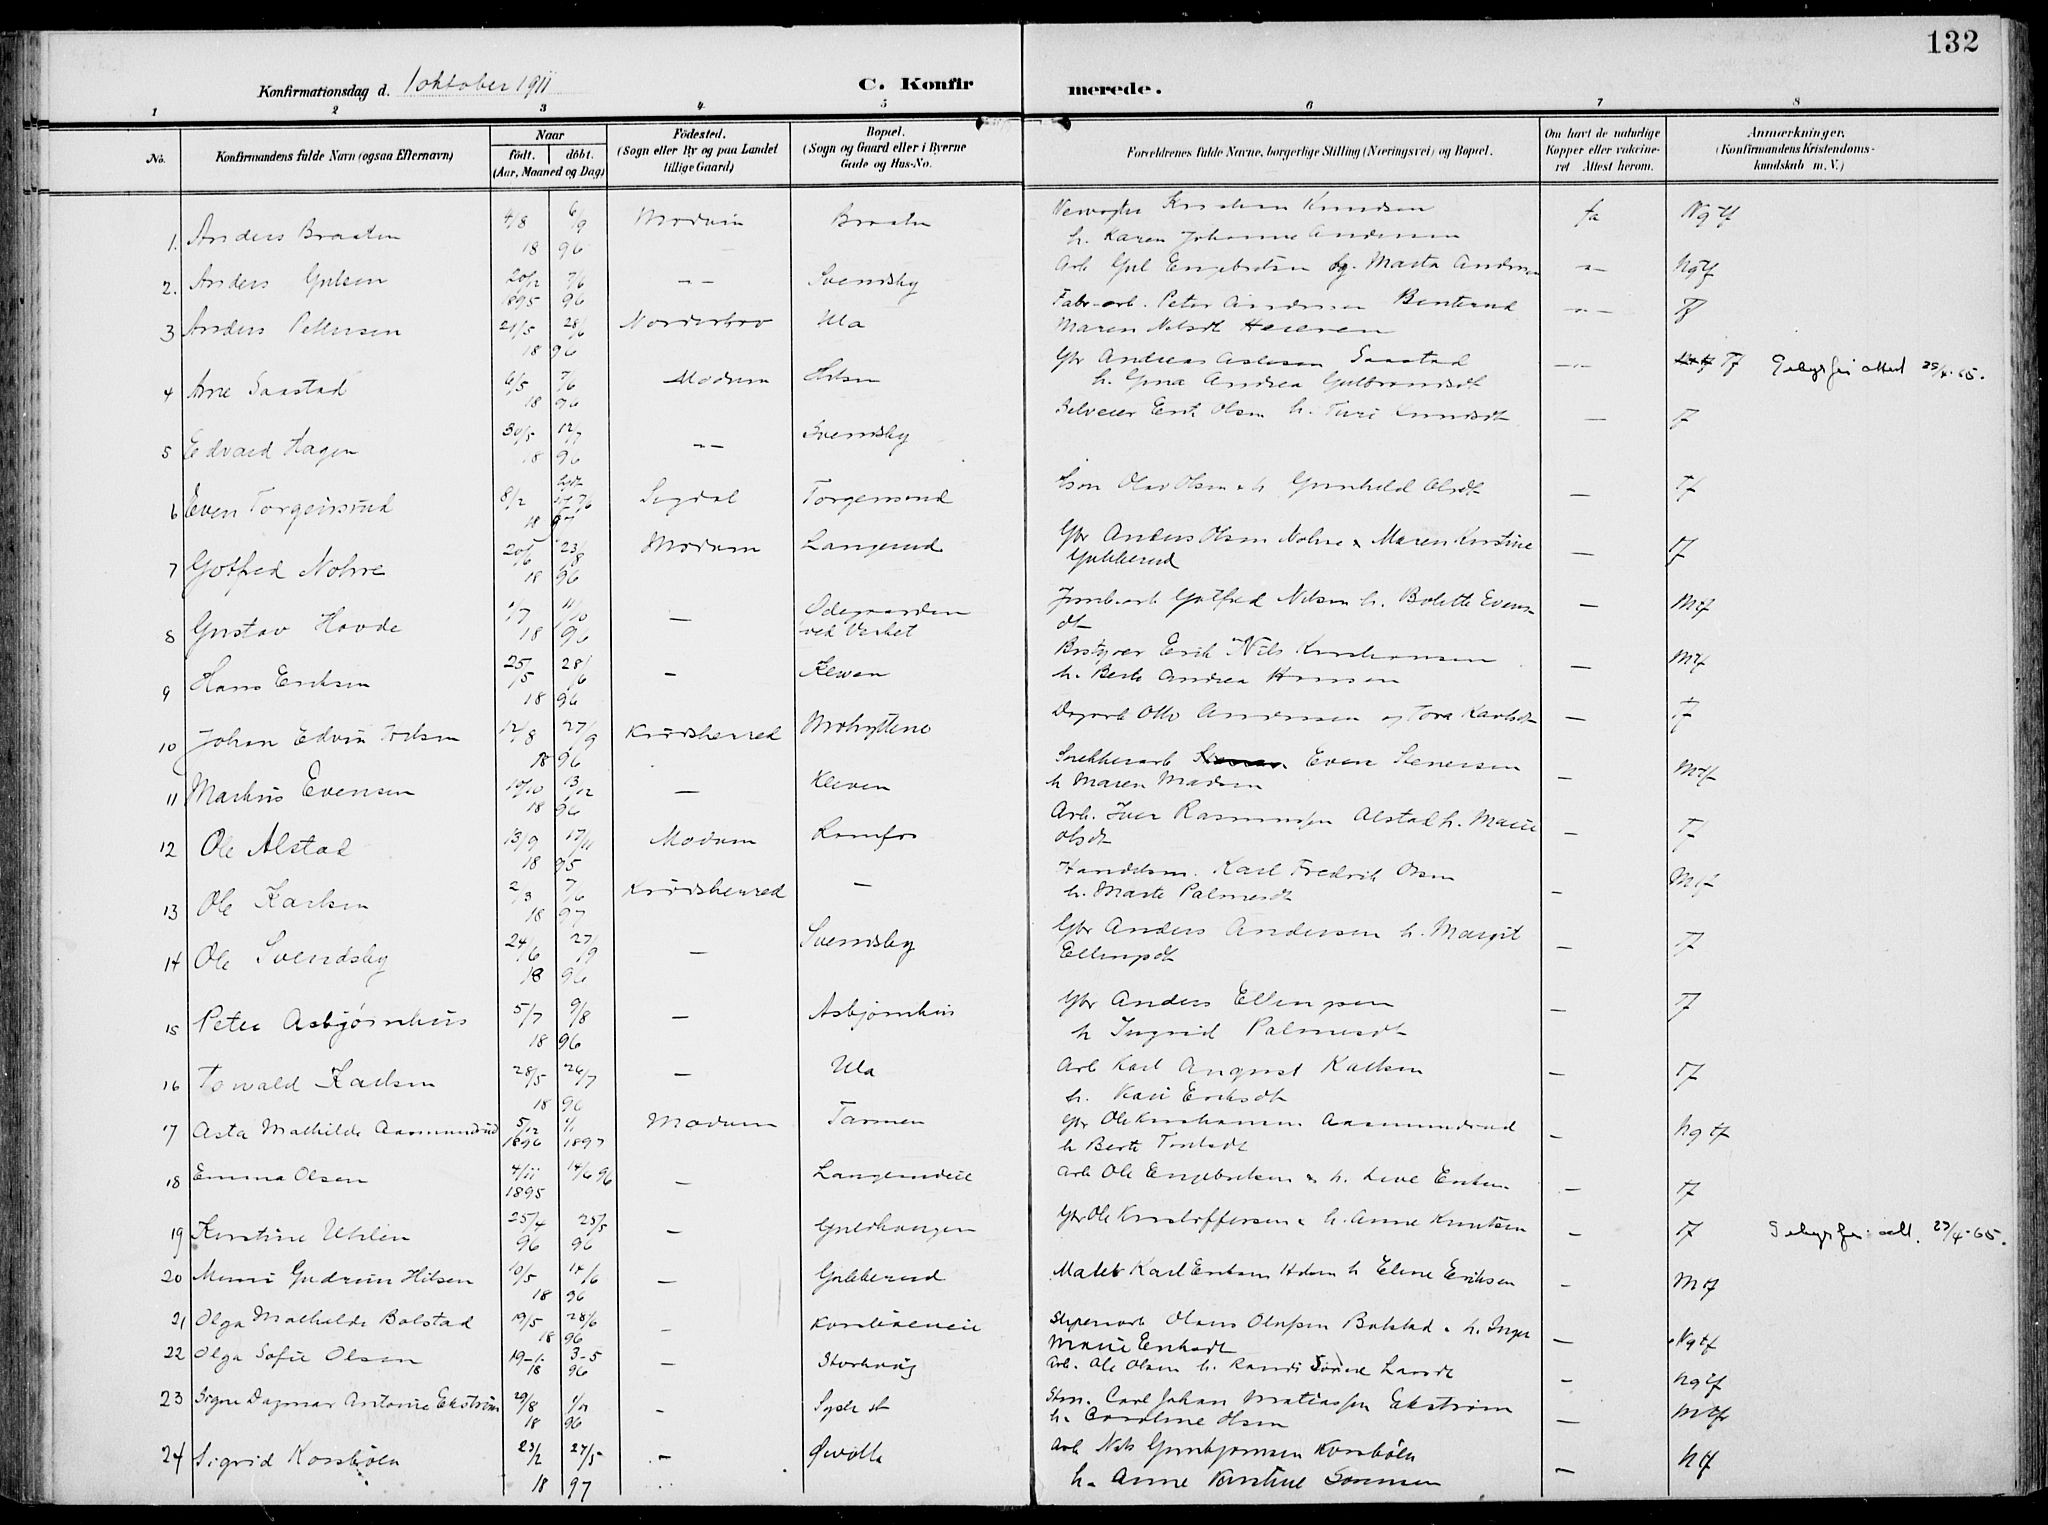 132
Konfirmationsdag d. 1 oktober 1911
C. Konfirmerede.
1 2 3 4 5 6 7 8
No.
Konfirmandens fulde Navn (ogsaa Efternavn)
Naar
født. døbt.
(Aar, Maaned og Dag)
Fødested.
(Sogn eller By og paa Landet
tillige Gaard)
Bopæl.
(Sogn og Gaard eller i Byerne
Gade og Hus-No.
Forældrenes fulde Navne, borgerlige Stilling (Næringsvei) og Bopæl.
Om havt de naturlige
Kopper eller vakcine-
ret Attest herom.
Anmærkninger.
(Konfirmandens Kristendoms-
kundskab m. V.)
1. Anders Braaten 4/8 6/9 18 96 Modum Braaten Kristian Knudsen
h. Karen Johanne Andersen ja Ng tf
2. Anders Gulsen 20/12 1895 7/6 96 -"- Svendsby Arb Gul Engebretsen og Marta Andersen -"- Ng tf
3 Anders Pettersen 21/5 28/6 18 96 Norderhov Ula Fabr-arb. Peter Andersen Benterud
Maren Nilsdt Heieren -"- Tf
4 Arne Saastad 6/5 7/6 18 96 Modum Gbr Andreas Saastad
h. Gina Andrea Gulbrandsdt -"- Tf Gebyrfri attest 25/4-65.
5 Edvard Hagen 30/5 12/7 18 96 -"- Svendsby Selveier Erik Olsen h. Turi Knudsdt - tf
6 Even Torgeirsrud 8/2 7/6 18 Sigdal Torgersrud Olav Olsen h Gunhild Olsdt - Tf
7 Gotfred Nohre 20/6 23/8 18 96 Modum Langerud Gbr Anders Olsen Nohre & Maren Kristine
Gubberud - tf
8 Gustav Hovde 1/7 11/10 18 96 - Ødegaarden
ved Verket Gotfred Nilsen h. Bolette Evens-
dt - Mtf
9 Hans Eriksen 25/5 28/6 18 96 - Kleven Bestyrer Erik Nils Kristiansen
h. Berte Andrea Hansen - Mtf
10 Johan Edvin 12/8 27/9 18 96 Krødsherred Mohyttene Dagarb Otto Andersen og Tora Karlsdt - tf
11 Markus Evensen 10/10 13/12 18 96 - Kleven Snekkerarb Even Stenersen
h Maren Madsen - Mtf
12 Ole Alstad 13/9 17/11 18 95 Modum Ramfos Arb. Iver Rasmussen Alstad h. Marie
Olsdt - Tf
13 Ole Karlsen 2/3 7/6 18 97 Krødsherred - Handelsm. Karl Fredrik Olsen
h. Marte Palmesdt - Mtf
14 Ole Svendsby 24/6 27/9 18 96 - Svendsby Gbr Anders Andersen h. Margit
Ellingsdt - Tf
15 Peter Asbjørnhus 5/7 9/8 18 96 - Asbjørnhus Gbr Anders Ellingsen
h Ingrid Palmesdt - Tf
16 Torvald Karlsen 28/5 26/7 18 96 - Ula Arb Karl August Karlsen
h. Kari Eriksdt - tf
17 Asta Mathilde Aasmundrud 5/12 1896 1/1 1897 Modum Tarmen Gbr Ole Kristiansen Aasmundrud
h Berte - Ng tf
18 Emma Olsen 4/11 1895 14/6 96 - Arb Ole Engebretsen & h. - tf
19 Kirstine Uhlen 25/4 96 25/5 96 - Guldhaugen Gbr Ole Kristoffersen & h. Anne Knutsen - tf Gebyrfri att. 23/4-65.
20 Gudrun Hilsen 10/5 14/6 18 96 - Gubberud Maler Karl Eriksen Hilsen h Eline Eriksen - Mtf
21 Olga Mathilde Bolstad 19/5 28/6 18 96 - Sliperiarb Olaus Olafsen Bolstad & h. Inger
Marie - Ng tf
22 Olga Sofie Olsen 3-5 18 96 - Storhaug Arb. Ole Olsen h. Randi - Ng tf
23 Signe Dagmar Antonie Ekstrøm 29/8 18 96 - Carl Johan Matiassen Ekstrøm
h. Caroline Olsen - Mtf
24 Sigrid Korsbøen 23/2 27/5 18 97 - Arb Nils Gunbjørnsen Korsbøen
h. Anne Kirstine Sørensen - Ntf